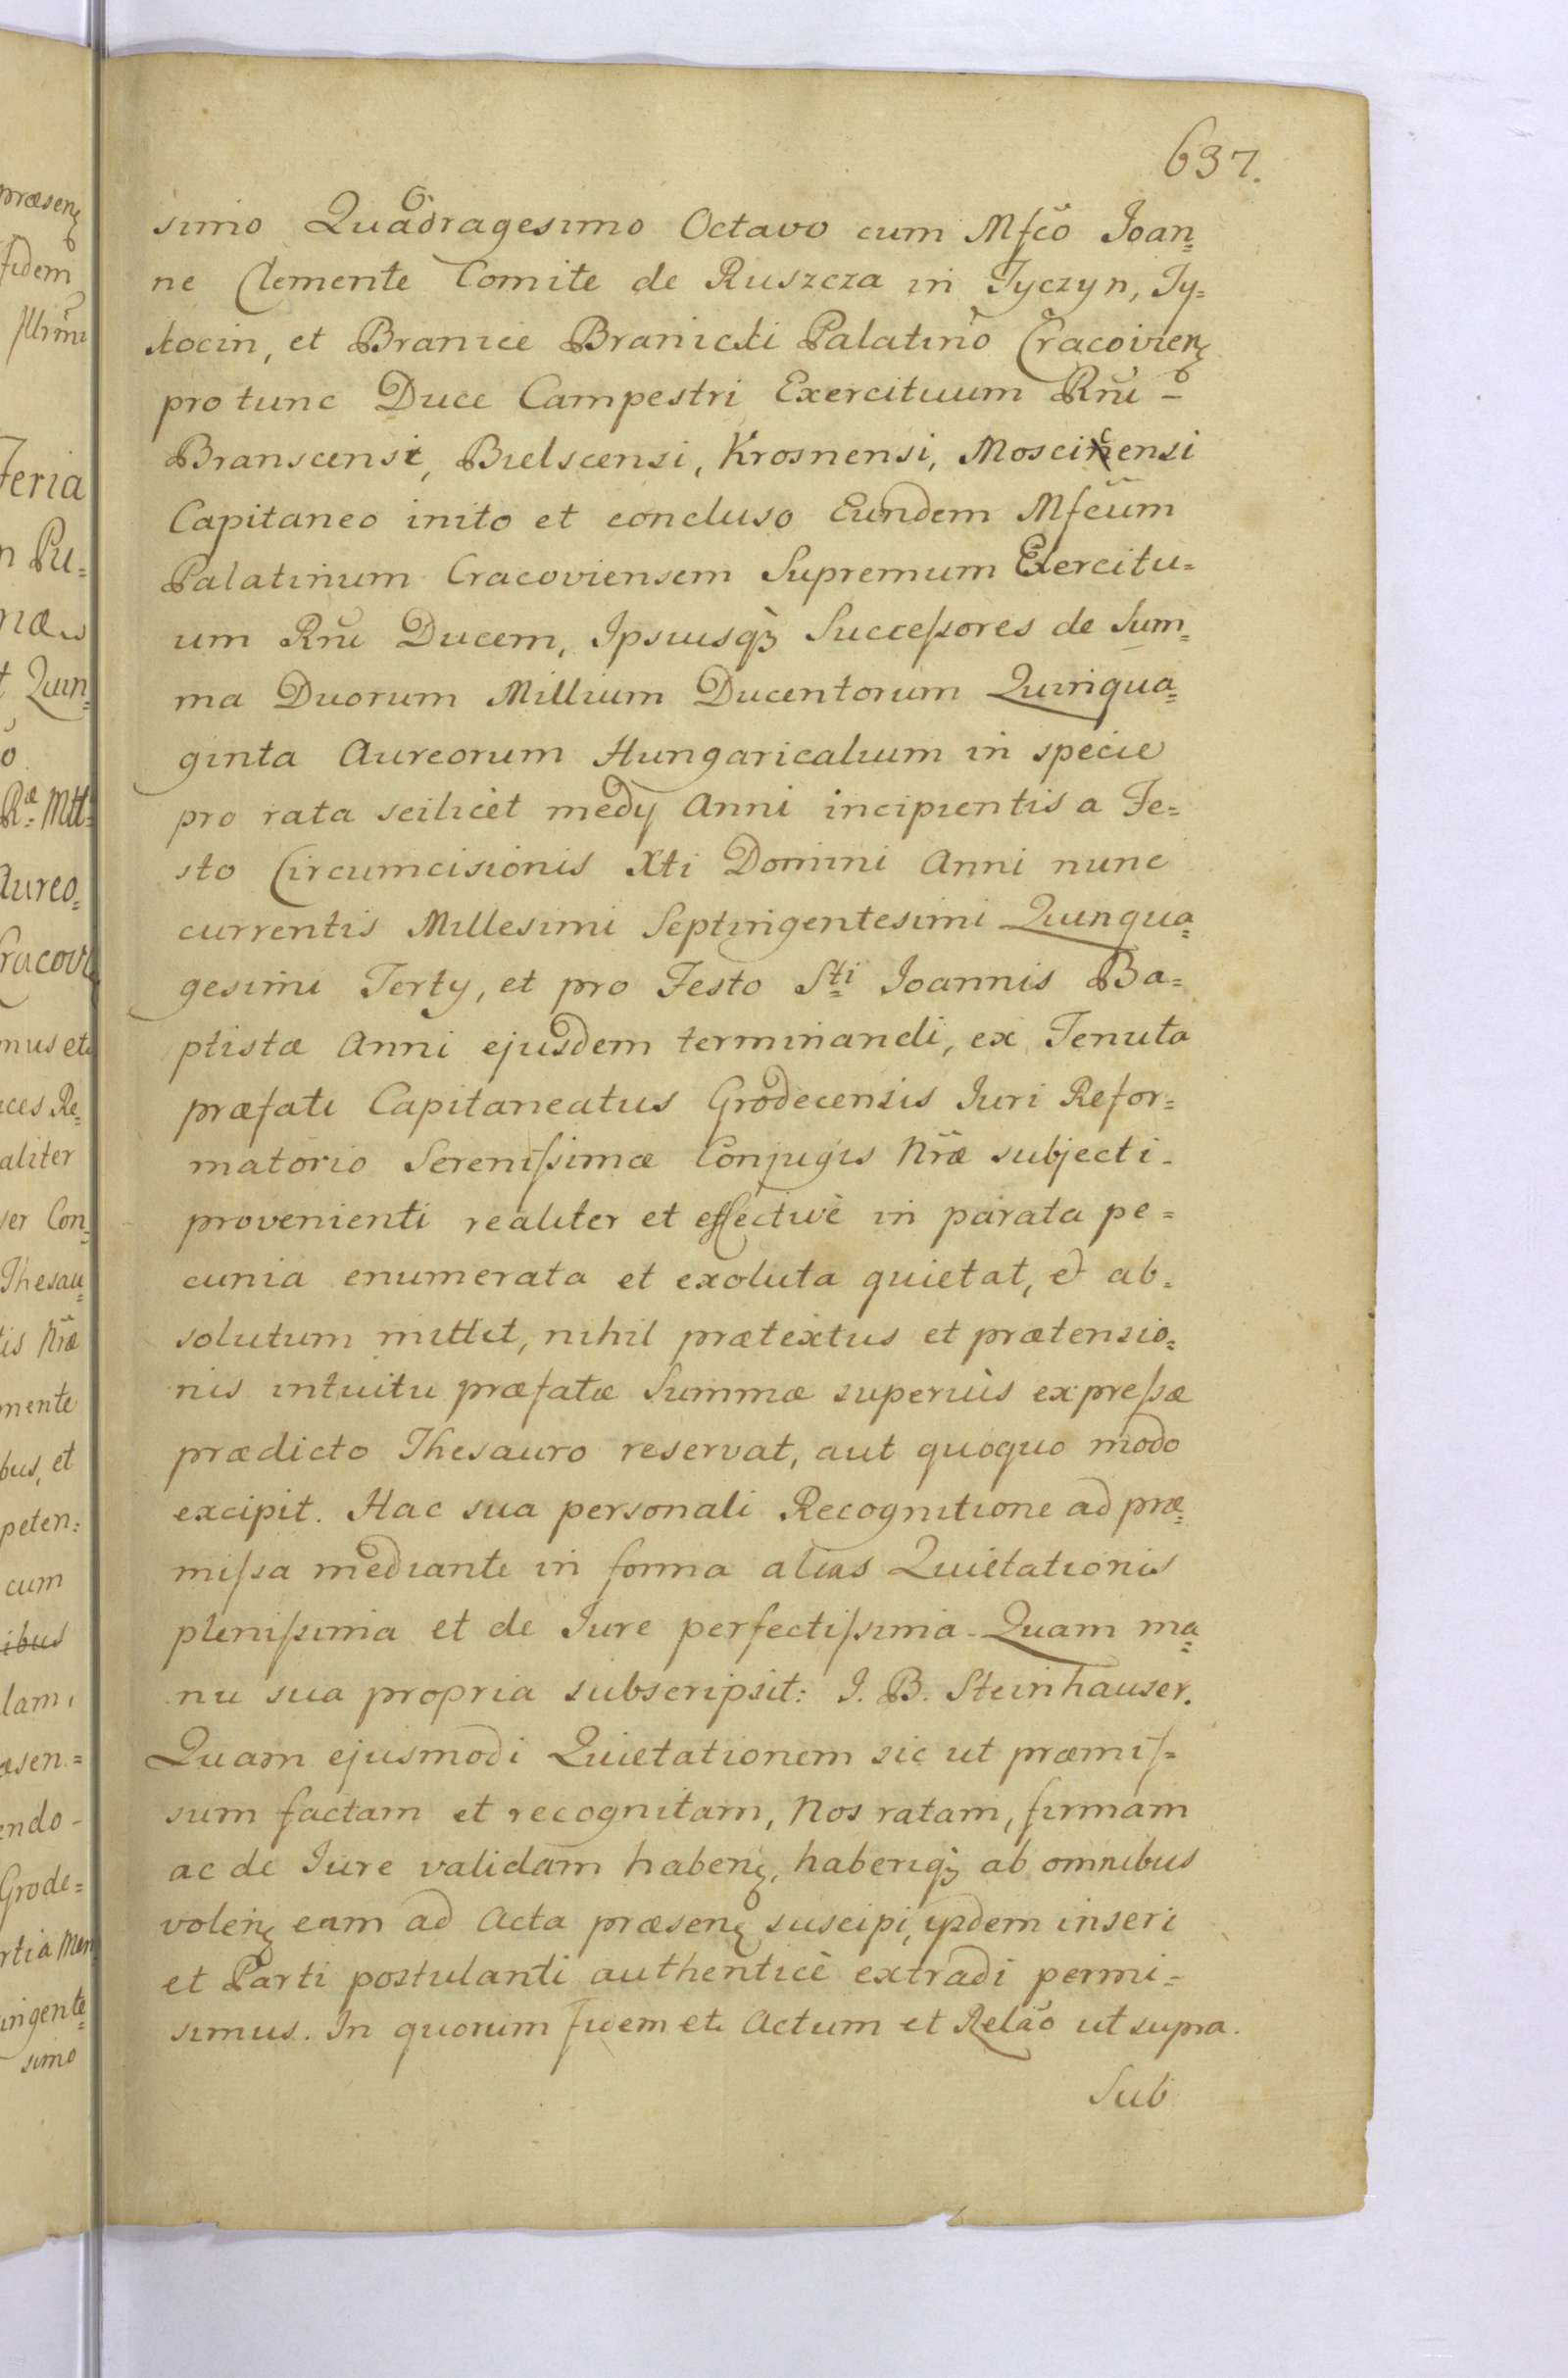 637.
simo Quadragesimo Octavo cum Mfco Joan=
ne Clemente Comite de Ruszcza in Tyczyn, Ty=
kocin, et Branice Branicki Palatino Cracovien
pro tunc Duce Campestri Exercituum Rni -
Branscensi, Bielscensi, Krosnensi, Moscicensi
Capitaneo inito et concluso Eundem Mfcum
Palatinum Cracoviensem Supremum Exercitu=
um Rni Ducem, Ipsiusq3 Successores de Sum=
ma Duorum Millium Ducentorum Quinqua=
ginta Aureorum Hungaricalium in specie
pro rata scilicèt medij Anni incipientis a Fe=
sto Circumcisionis Xti Domini Anni nunc
currentis Millesimi Septingentesimi Quinqua=
gesimi Tertij, et pro Festo Sti Joannis Ba=
ptistæ Anni ejusdem terminandi, ex Tenuta
præfati Capitaneatus Grodecensis Juri Refor=
matorio Serenissimæ Conjugis Nræ subjecti -
provenienti realiter et effectivè in parata pe=
cunia enumerata et exoluta quietat, & ab=
solutum mittit, nihil prætextus et prætensio=
nis intuitu præfatæ Summæ superiùs expressæ
prædicto Thesauro reservat, aut quoquo modo
excipit. Hac sua personali Recognitione ad præ=
missa mediante in forma alias Quietationis
plenissima et de Jure perfectissima - Quam ma=
nu sua propria subscripsit: J. B. Steinhauser.
Quam ejusmodi Quietationem sic ut præmis=
sum factam et recognitam, Nos ratam, firmam
ac de Jure validam haben, haberiq3 ab omnibus
volen eam ad Acta præsen suscipi, ijsdem inseri
et Parti postulanti authenticè extradi permi=
simus. In quorum fidem etc Actum et Relão ut supra.
Sub